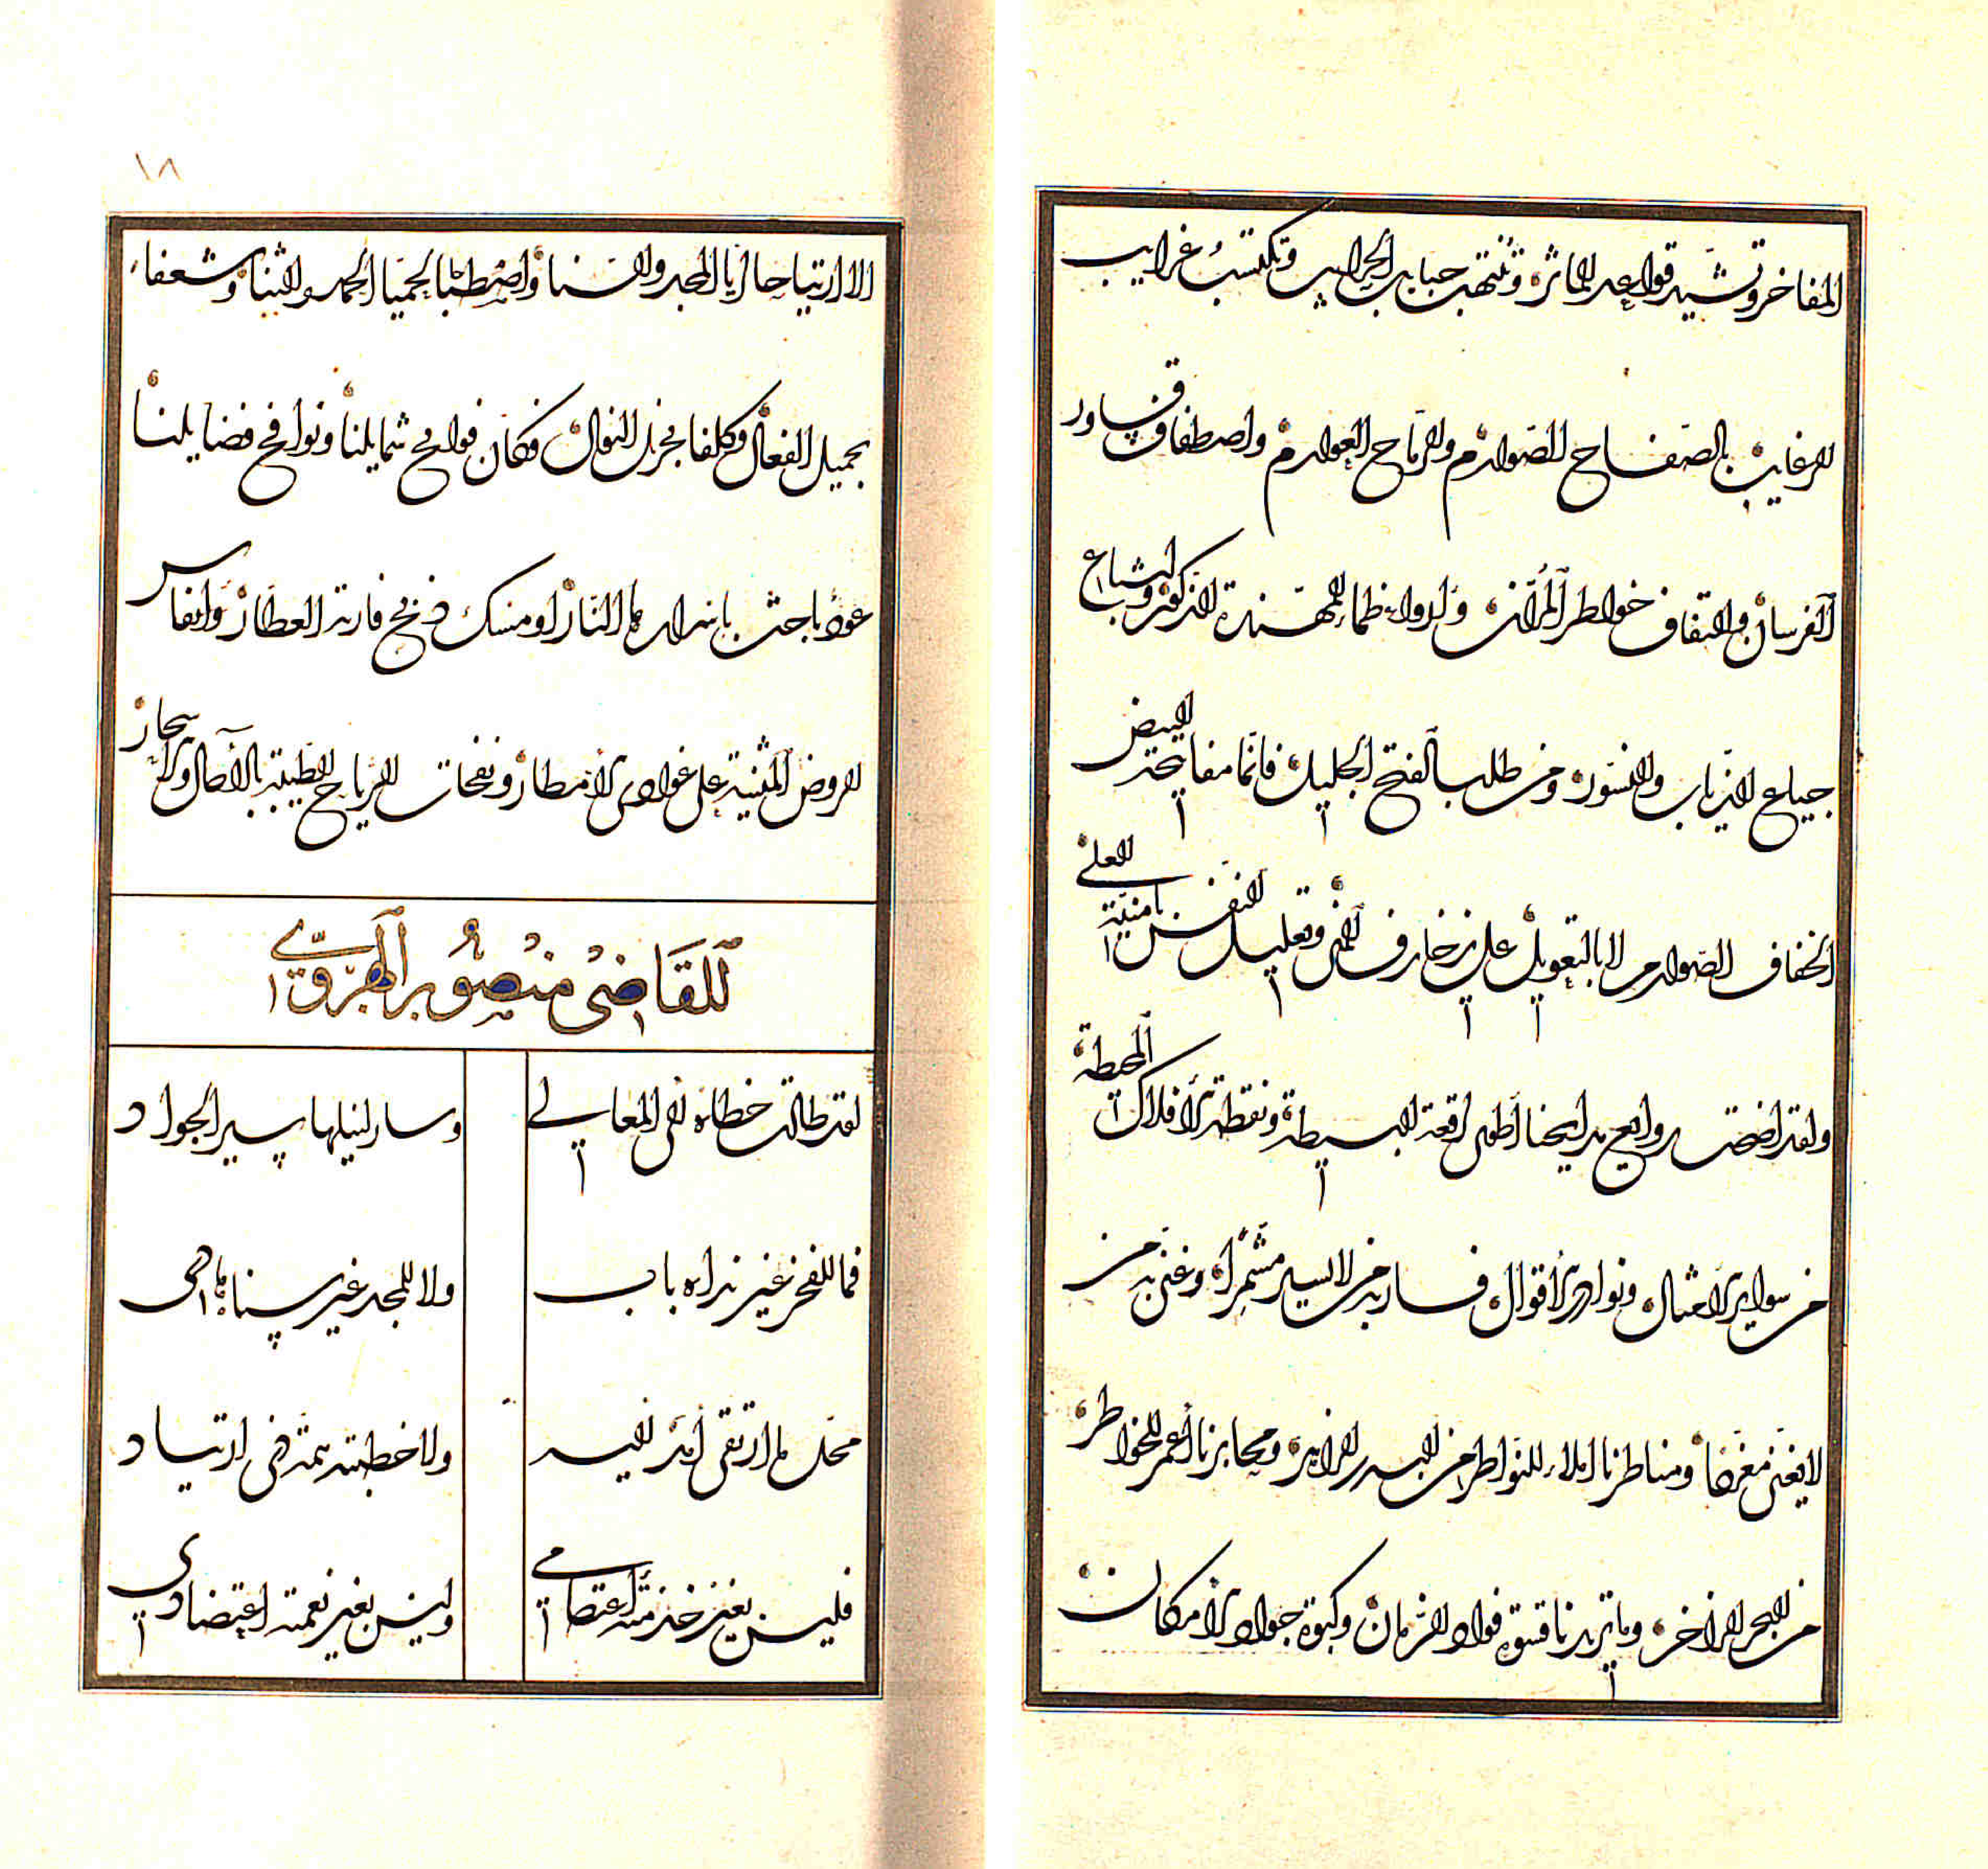 المفاخر وتشيد قواعد المآثر وتنتهب حبايب الحرايب وتكتسب غرايب
الرغايب بالصفاح الصوارم والرماح العوارم واصطفاق
الفرسان والتفاف خواطر المران وارواء ظماء المهندة الذكور واشباع
جياع الذياب والنسور ومن طلب الفتح الجليل فانما مفاتيحه البيض
الخفاف الصوارم لا بالتعويل على زخارف المنى وتعليل النفس بامنية العلى
ولقد اضحت روايع مدايحنا اطول رقعة البسيطة ونقطة الافلاك المحيطة
من سواير الامثال ونوادر الاقوال فسار به من لا يسير مشمرا وغنى به من
لا يغنى مغردا ومناظرنا املاء للنواظر من البدر الزاهر ومحابرنا اغمر للخواطر
من البحر الزاخر وما تزيدنا قسوة فؤاد الزمان وكبوة جواد الامكان
١٨
الا ارتياحا الى المجد والسنا واصطباحا بحميا الحمد والثنا وشعفا
بجميل الفعال وكلفا بجزل النوال فكان فوايح شمايلنا ونوافح فضايلنا
عود باحت باسراره النار او مسك فارة العطار وانفاس
الروض المثنية على غوادي الامطار ونفحات الرياح الطيبة بالاصال والاسحار
للقاضي منصور الهروي
لقد طالت خطاه في المعالي وسار لنيلها سير الجواد
فما للفخر غير نداه باب ولا للمجد غير سناه هادى
محل ما ارتقى امد اليه ولا خطبته همة في ارتياد
فليس بغير خدمته اعتصامي وليس بغير نعمته اعتضادي